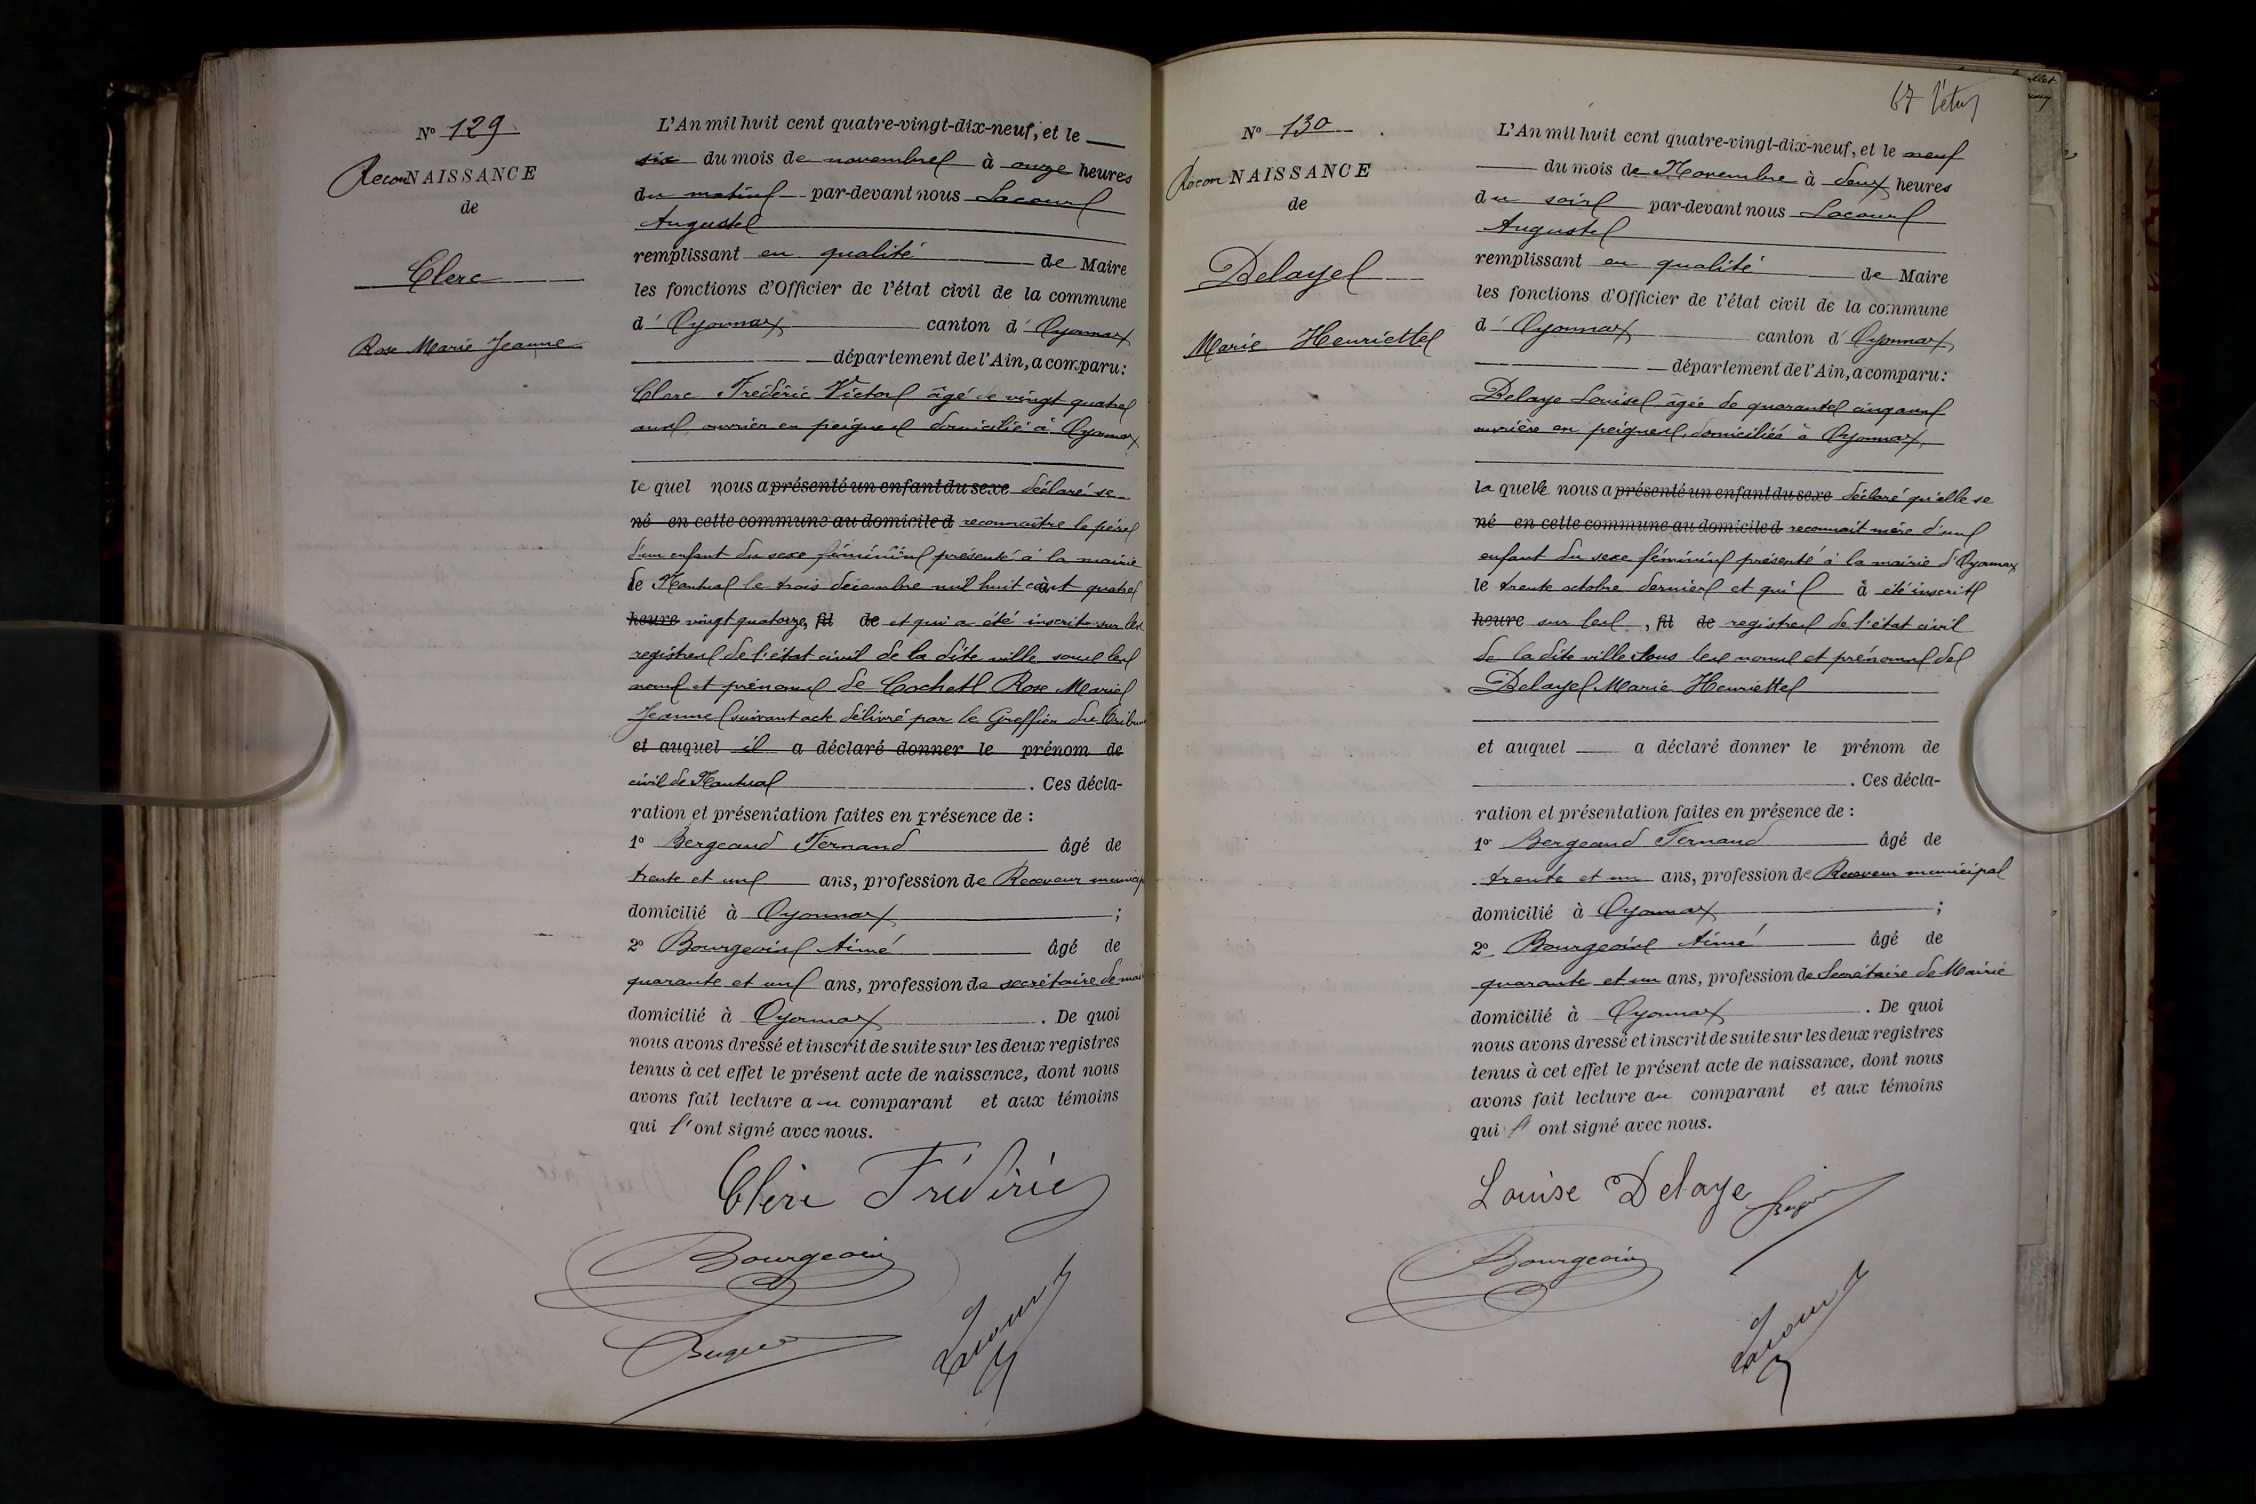 Nº 129
ReconNAISSANCE
de
Clerc
Rose Marie Jeanne
L'An mil huit cent quatre-vingt-dix-neuf, et le
six du mois de novembre à onze heures
du matin par-devant nous Lacour
Auguste
remplissant en qualité de Maire
les fonctions d'Officier de l'état civil de la commune
d' Oyonnax canton d' Oyonnax
département de l'Ain, a comparu:
Clerc Frédéric Victor âgé de vingt quatre
ans ouvrier en peignes domicilié à Oyonnax
le quel nous a présenté un enfant du sexe déclaré se
né en cette commune au domicile d reconnaître le père
d'un enfant du sexe féminin présenté à la mairie
de Nantua le trois décembre mil huit cent quatre
heure vingt quatorze, fil de et qui a été inscrite sur les
registres de l'état civil de la dite ville sous les
noms et prénoms de Cochet Rose Marie
Jeanne suivant acte délivré par le Greffier du Tribunal
et auquel il a déclaré donner le prénom de
civil de Nantua . Ces décla-
ration et présentation faites en présence de :
1º Bergeaud Fernand âgé de
trente et un ans, profession de Receveur municip
domicilié à Oyonnax ;
2º Bourgeois Aimé âgé de
quarante et un ans, profession de secrétaire de mai
domicilié à Oyonnax . De quoi
nous avons dressé et inscrit de suite sur les deux registres
tenus à cet effet le présent acte de naissance, dont nous
avons fait lecture au comparant et aux témoins
qui l'ont signé avec nous.
Clerc Frédéric
Bourgeois
Lacour
67
Nº 130
ReconNAISSANCE
de
Delaye
Marie Henriette
L'An mil huit cent quatre-vingt-dix-neuf, et le neuf
du mois de Novembre à deux heures
du soir par-devant nous Lacour
Auguste
remplissant en qualité de Maire
les fonctions d'Officier de l'état civil de la commune
d' Oyonnax canton d' Oyonnax
département de l'Ain, a comparu:
Delaye Louise âgée de quarante cinq ans
ouvrière en peignes, domiciliée à Oyonnax,
la quelle nous a présenté un enfant du sexe déclaré qu'elle se
né en cette commune au domicile d reconnait mère d'un
enfant du sexe féminin présenté à la mairie d'Oyonnax
le trente octobre dernier et qui à été inscrit
heure sur les , fil de registres de l'état civil
de la dite ville sous les noms et prénoms de
Delaye Marie Henriette
et auquel a déclaré donner le prénom de
. Ces décla-
ration et présentation faites en présence de :
1º Bergeaud Fernand âgé de
trente et un ans, profession de Receveur municipal
domicilié à Oyonnax ;
2º Bourgeois Aimé âgé de
quarante et un ans, profession de Secrétaire de Mairie
domicilié à Oyonnax . De quoi
nous avons dressé et inscrit de suite sur les deux registres
tenus à cet effet le présent acte de naissance, dont nous
avons fait lecture au comparant et aux témoins
qui l'ont signé avec nous.
Louise Delaye
Bourgeois
Lacour